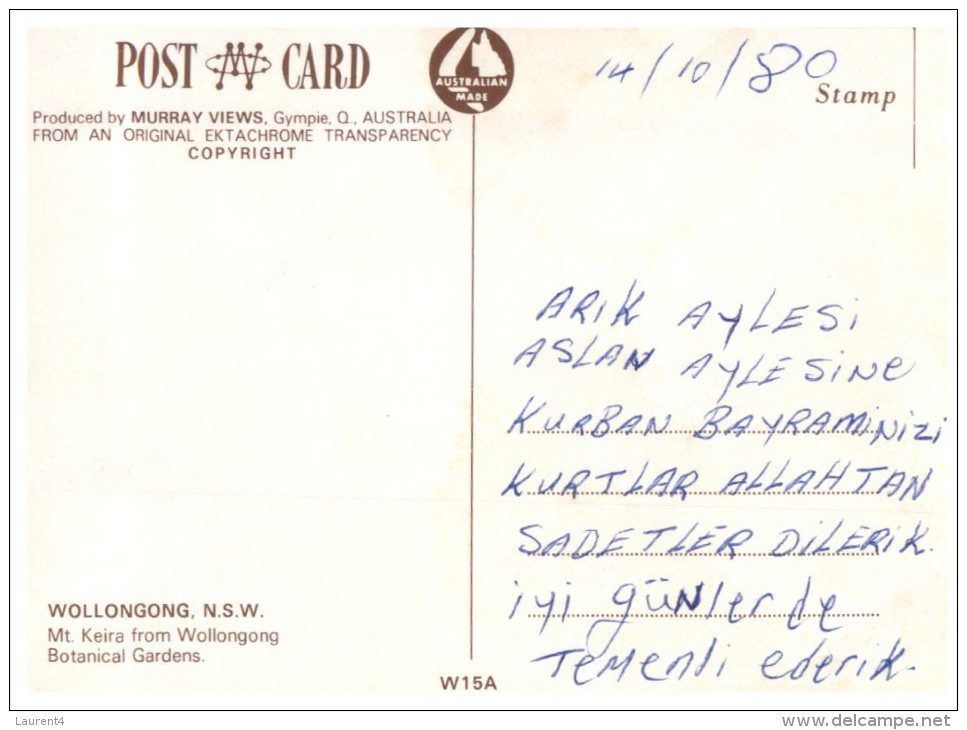 POST CARD
Produced by MURRAY VIEWS, Gympie, Q., AUSTRALIA
FROM AN ORIGINAL EKTACHROME TRANSPARENCY
COPYRIGHT
AUSTRALIAN
MADE
14/10/80
Stamp
ARIK AYLESi
ASLAN AYLESiNe
KURBAN BAYRAMiNiZi
KURTLAR ALLAHTAN
SADETLER DiLERiK.
iyi günlerde
Temenli ederik.
WOLLONGONG, N.S.W.
Mt. Keira from Wollongong
Botanical Gardens.
W15A
Laurent4
www.delcampe.net